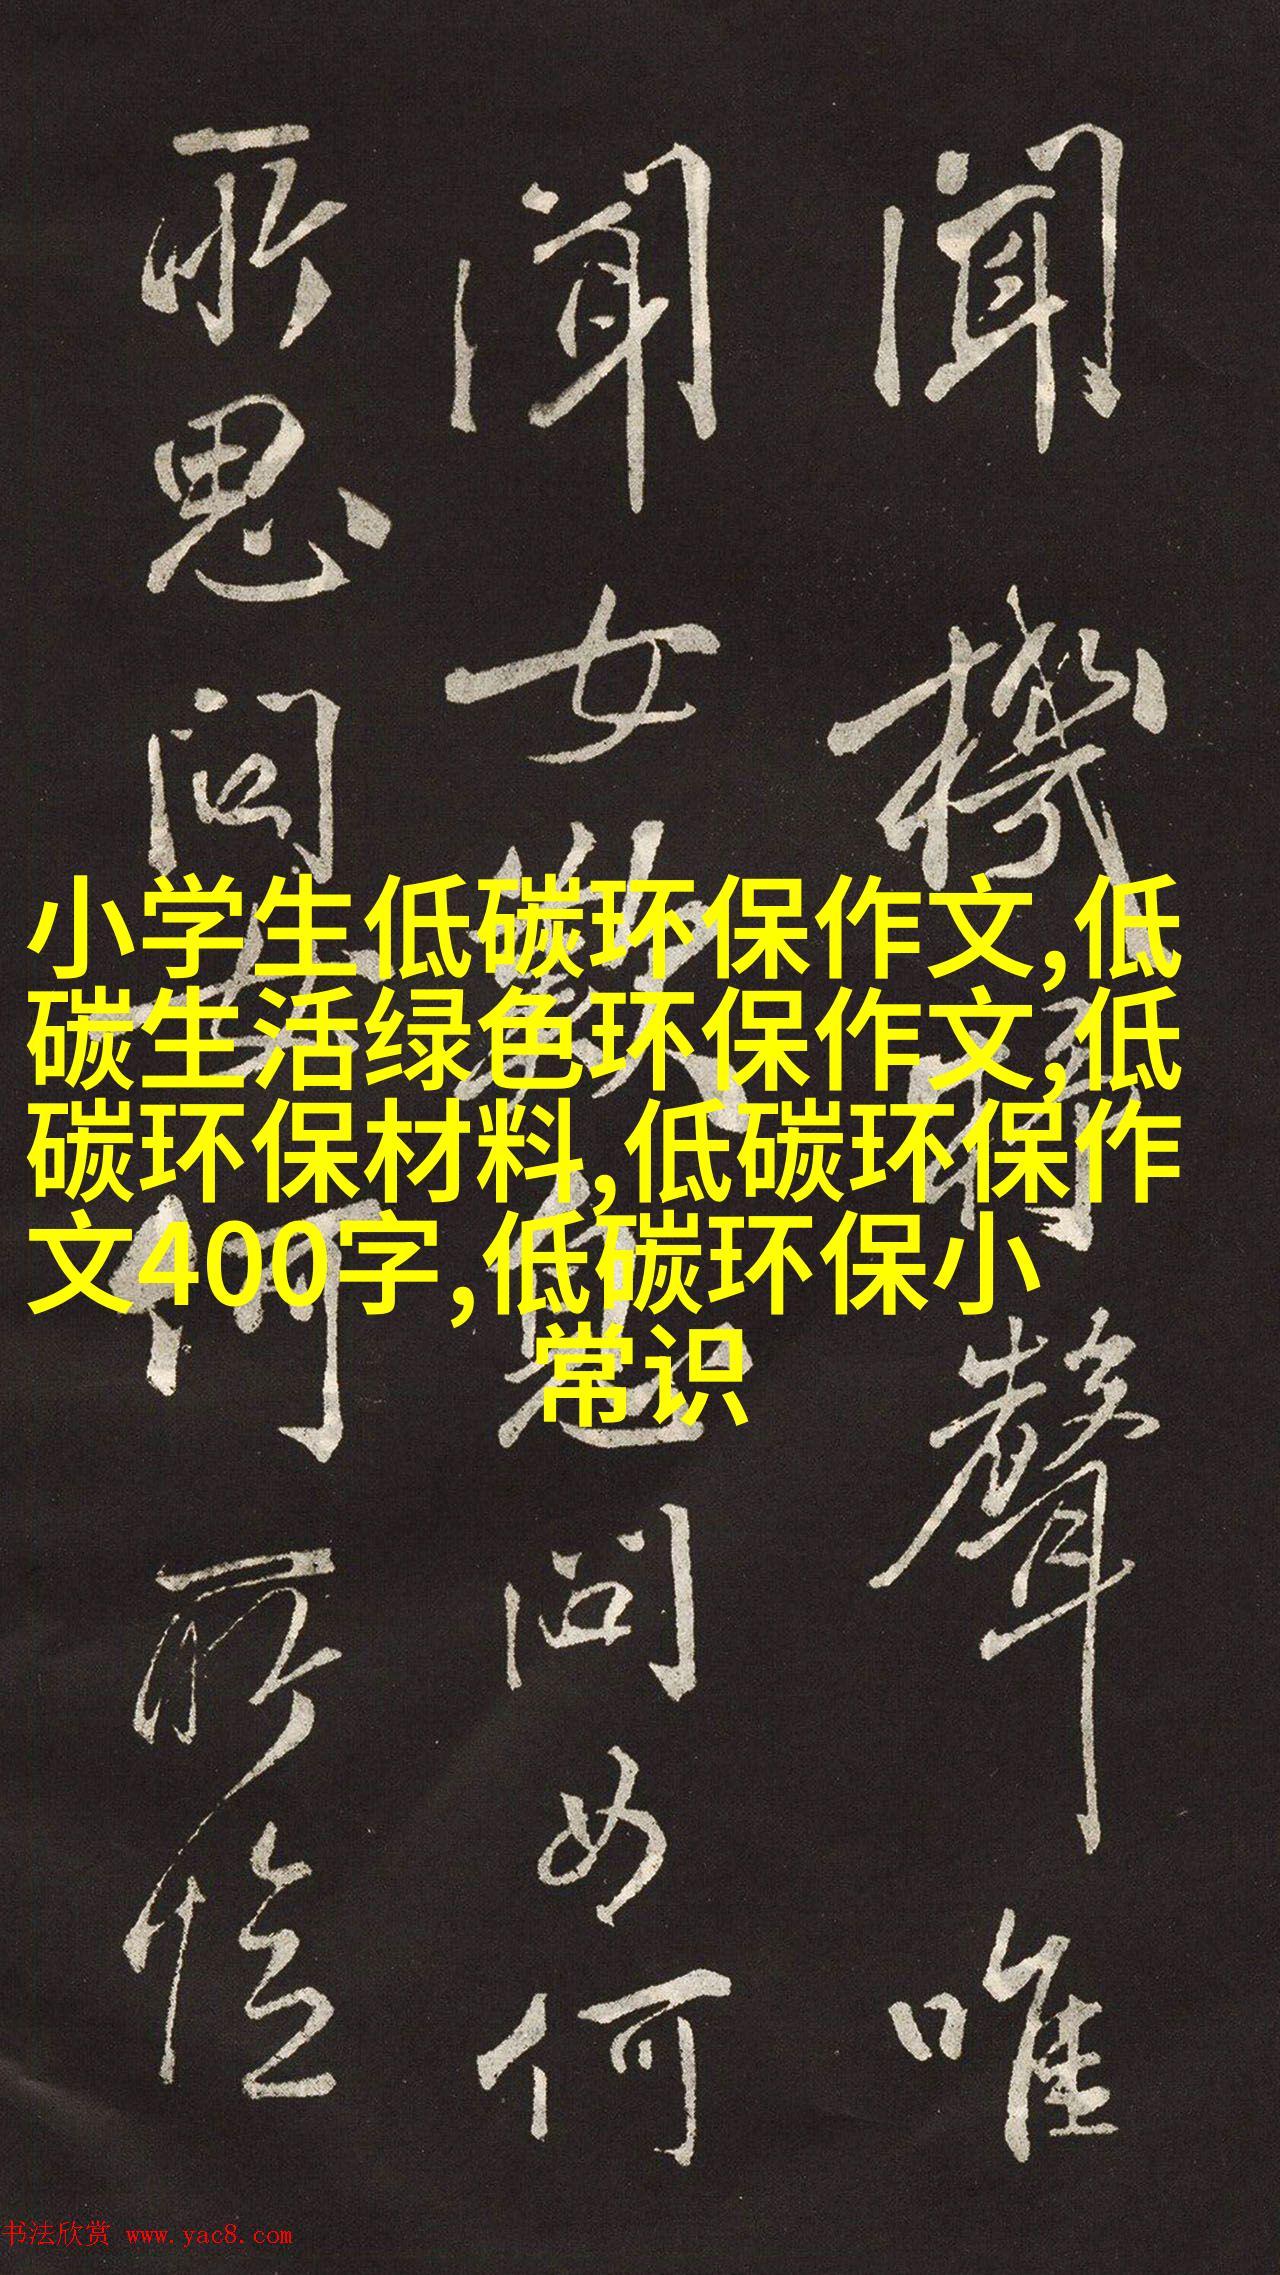 聞機杼聲唯
聞女歎息問女何
所思問女何所憶
小学生低碳环保作文,低
碳生活绿色环保作文,低
碳环保材料,低碳环保作
文400字,低碳环保小
常识
书法欣赏 www.yac8.com